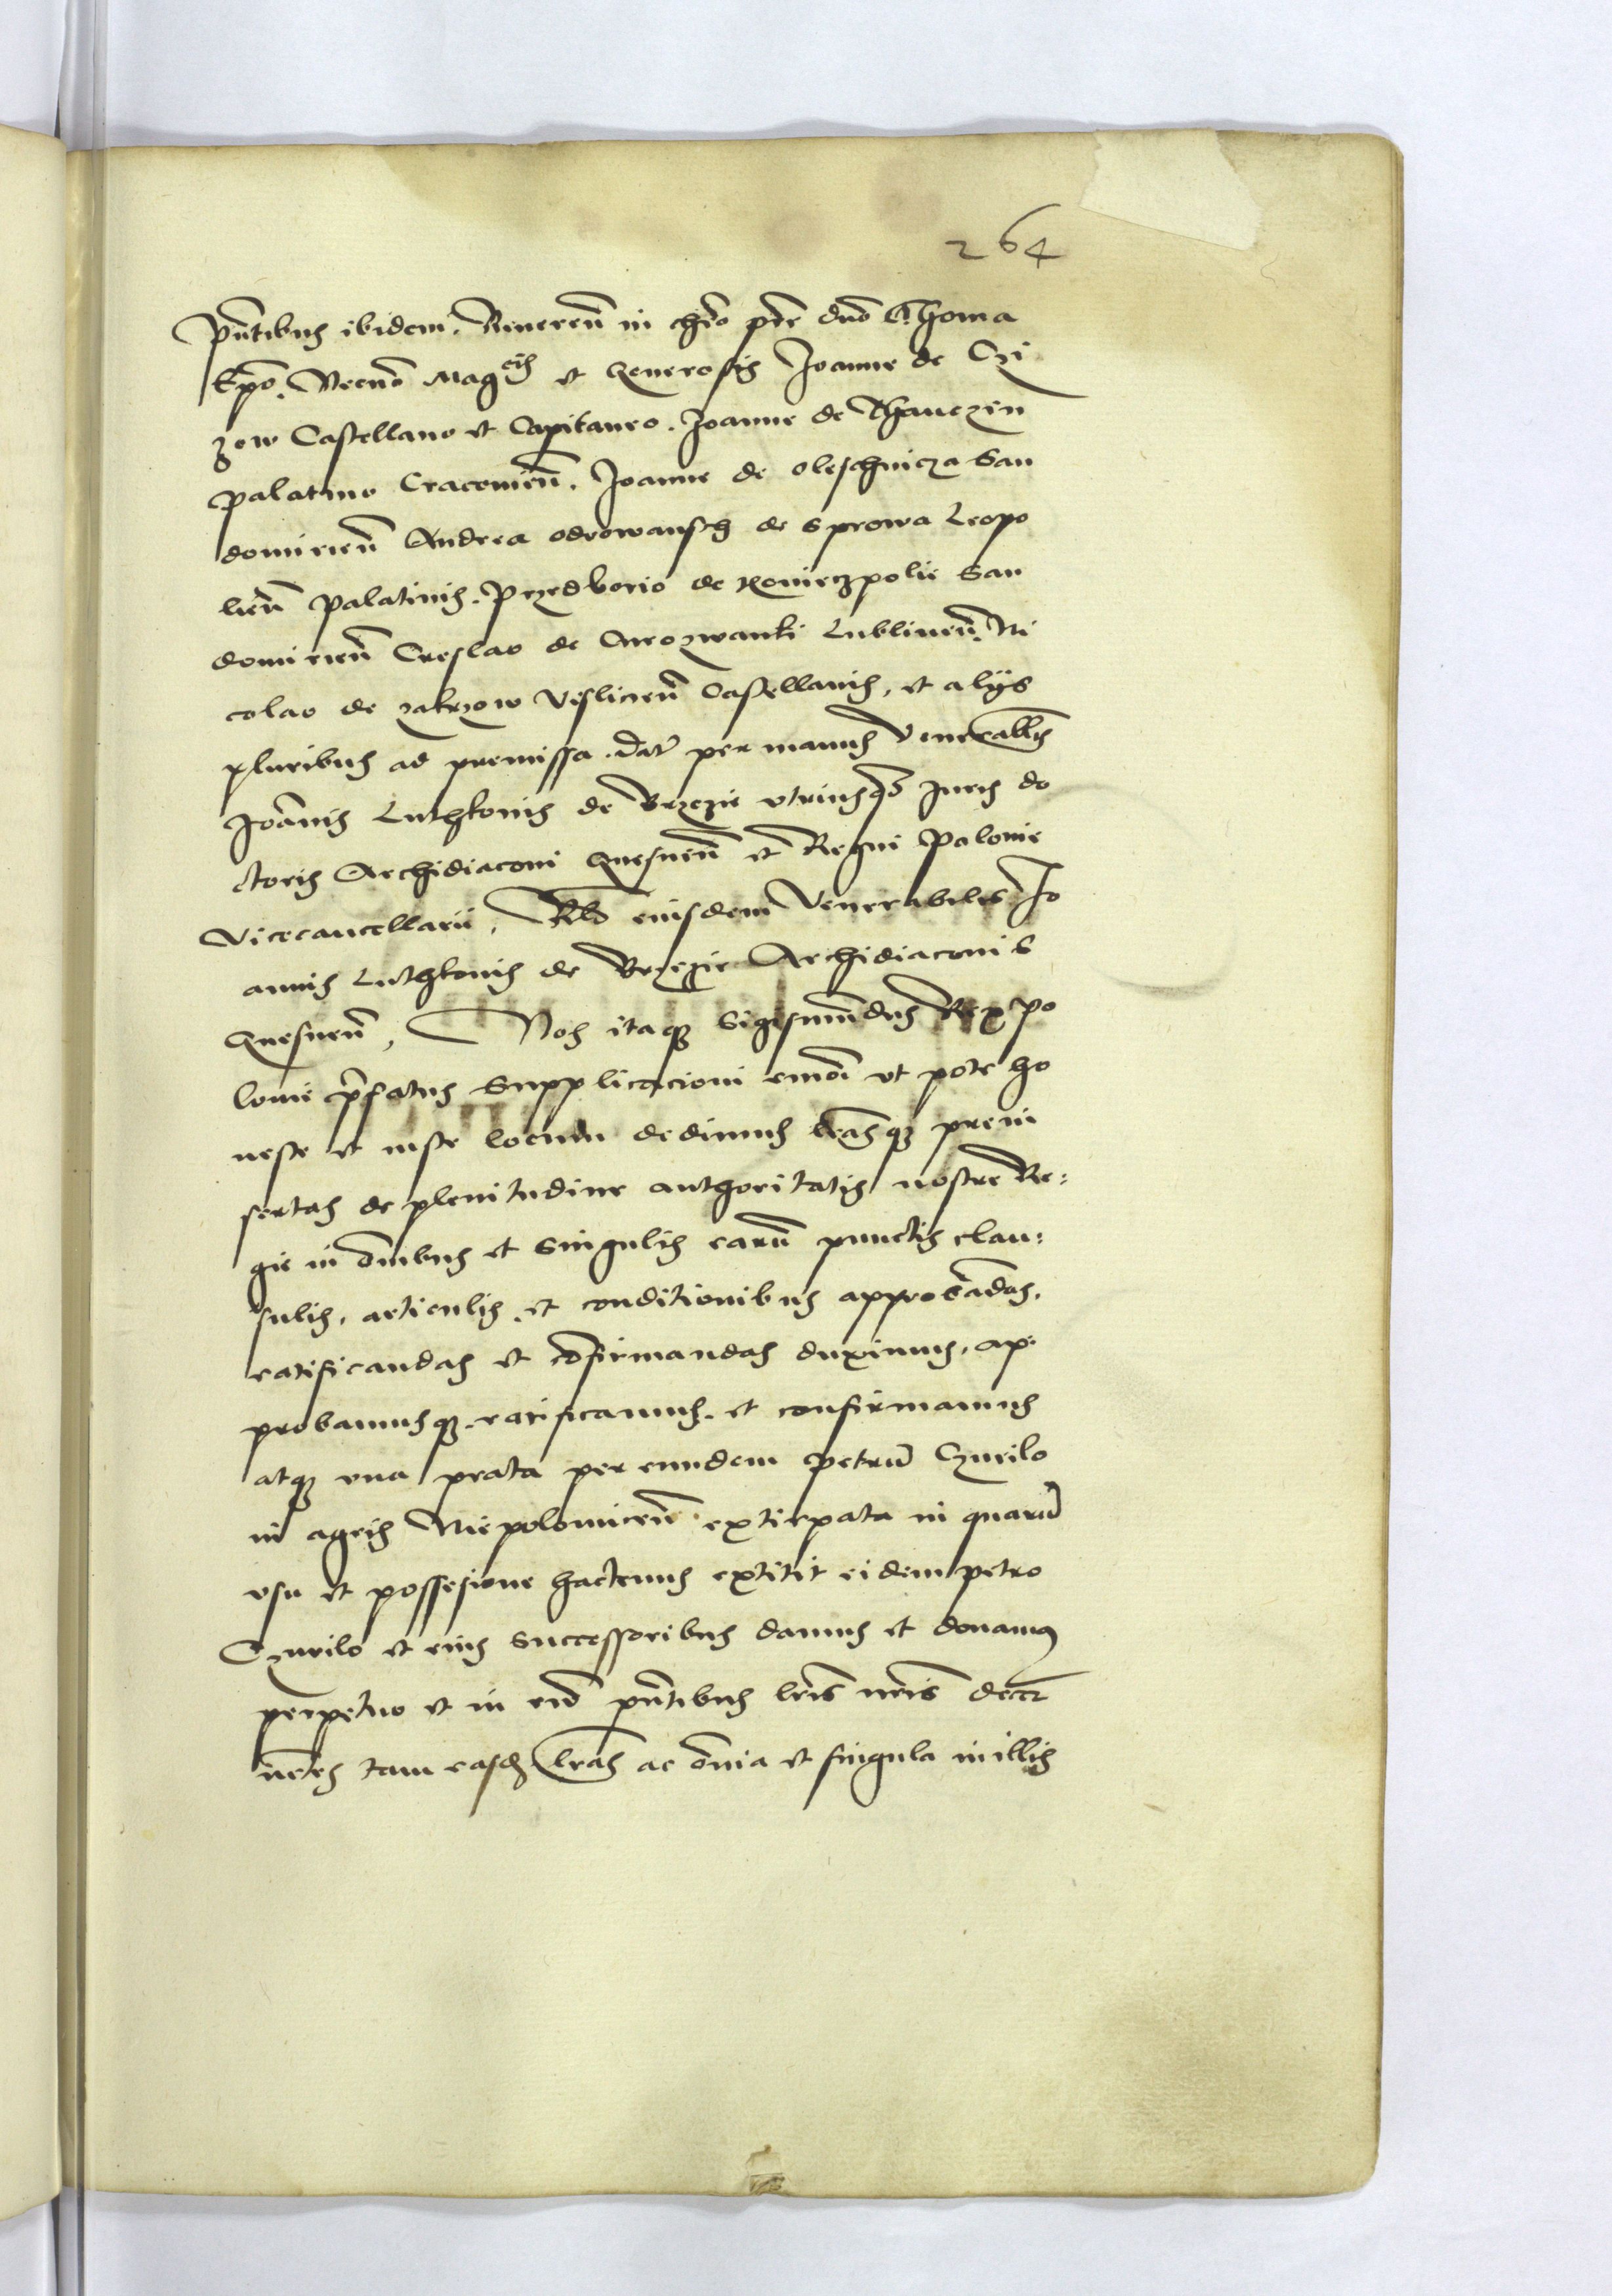 264
pn̄tibus ibidem. Reueren̄ in chr̄o pr̄e dn̄o Thoma
Ep̄o. Necno͞ Mag^cis et Generosis Joanne de Czi
zow Castellano et Capitaneo. Joanne de Thanczin
palatino Cracouien̄. Joanne de oleschnicza San
domirien̄ Andrea odrowansch de Sprowa Leopo
lien̄ palatinis. Przedborio de Konieczpolie San
domirien̄ Creslao de Curozwanki Lublinen̄. Ni
colao de zakrzow Vislicien̄ Castellanis, et alijs
pluribus ad premissa. dat̄ per manus Venerabl̄is
Joān̄is Luthkonis de Brzezie vtriusq̄ȝ Juris do
ctoris Archidiaconi Gnesnen̄ et Regni Polonie
Vicecancellarii, Rl̄o eiusdem Venerabilis Jo
annis Luthkonis de Brzezie Archidiaconi S
Gnesnen̄, Nos itaqȝ Sigismūdus Rex po
lonie p̄fatus Supplicacioni em̄oi vt pote ho
neste et iuste locum dedimus lr̄asqȝ prein
sertas de plenitudine authoritatis nostre Re:
gie in om̄ibus et Singulis earū punctis clau:
sulis, articulis, et conditionibus approbādas,
ratificandas et cōfirmandas duximus, ap:
probamusqȝ. ratificamus. et confirmamus
atqȝ vna prata per eundem Petrū Czurilo
in agris Niepolomicen̄ extirpata in quarū
vsu et possesione hactenus extitit eidem petro
Czurilo et eius Successoribus damus et donamus
perpetuo et in euū pn̄tibus lr̄is nr̄is decer
nētes tam easd̄ lr̄as ac om̄ia et singula in illis